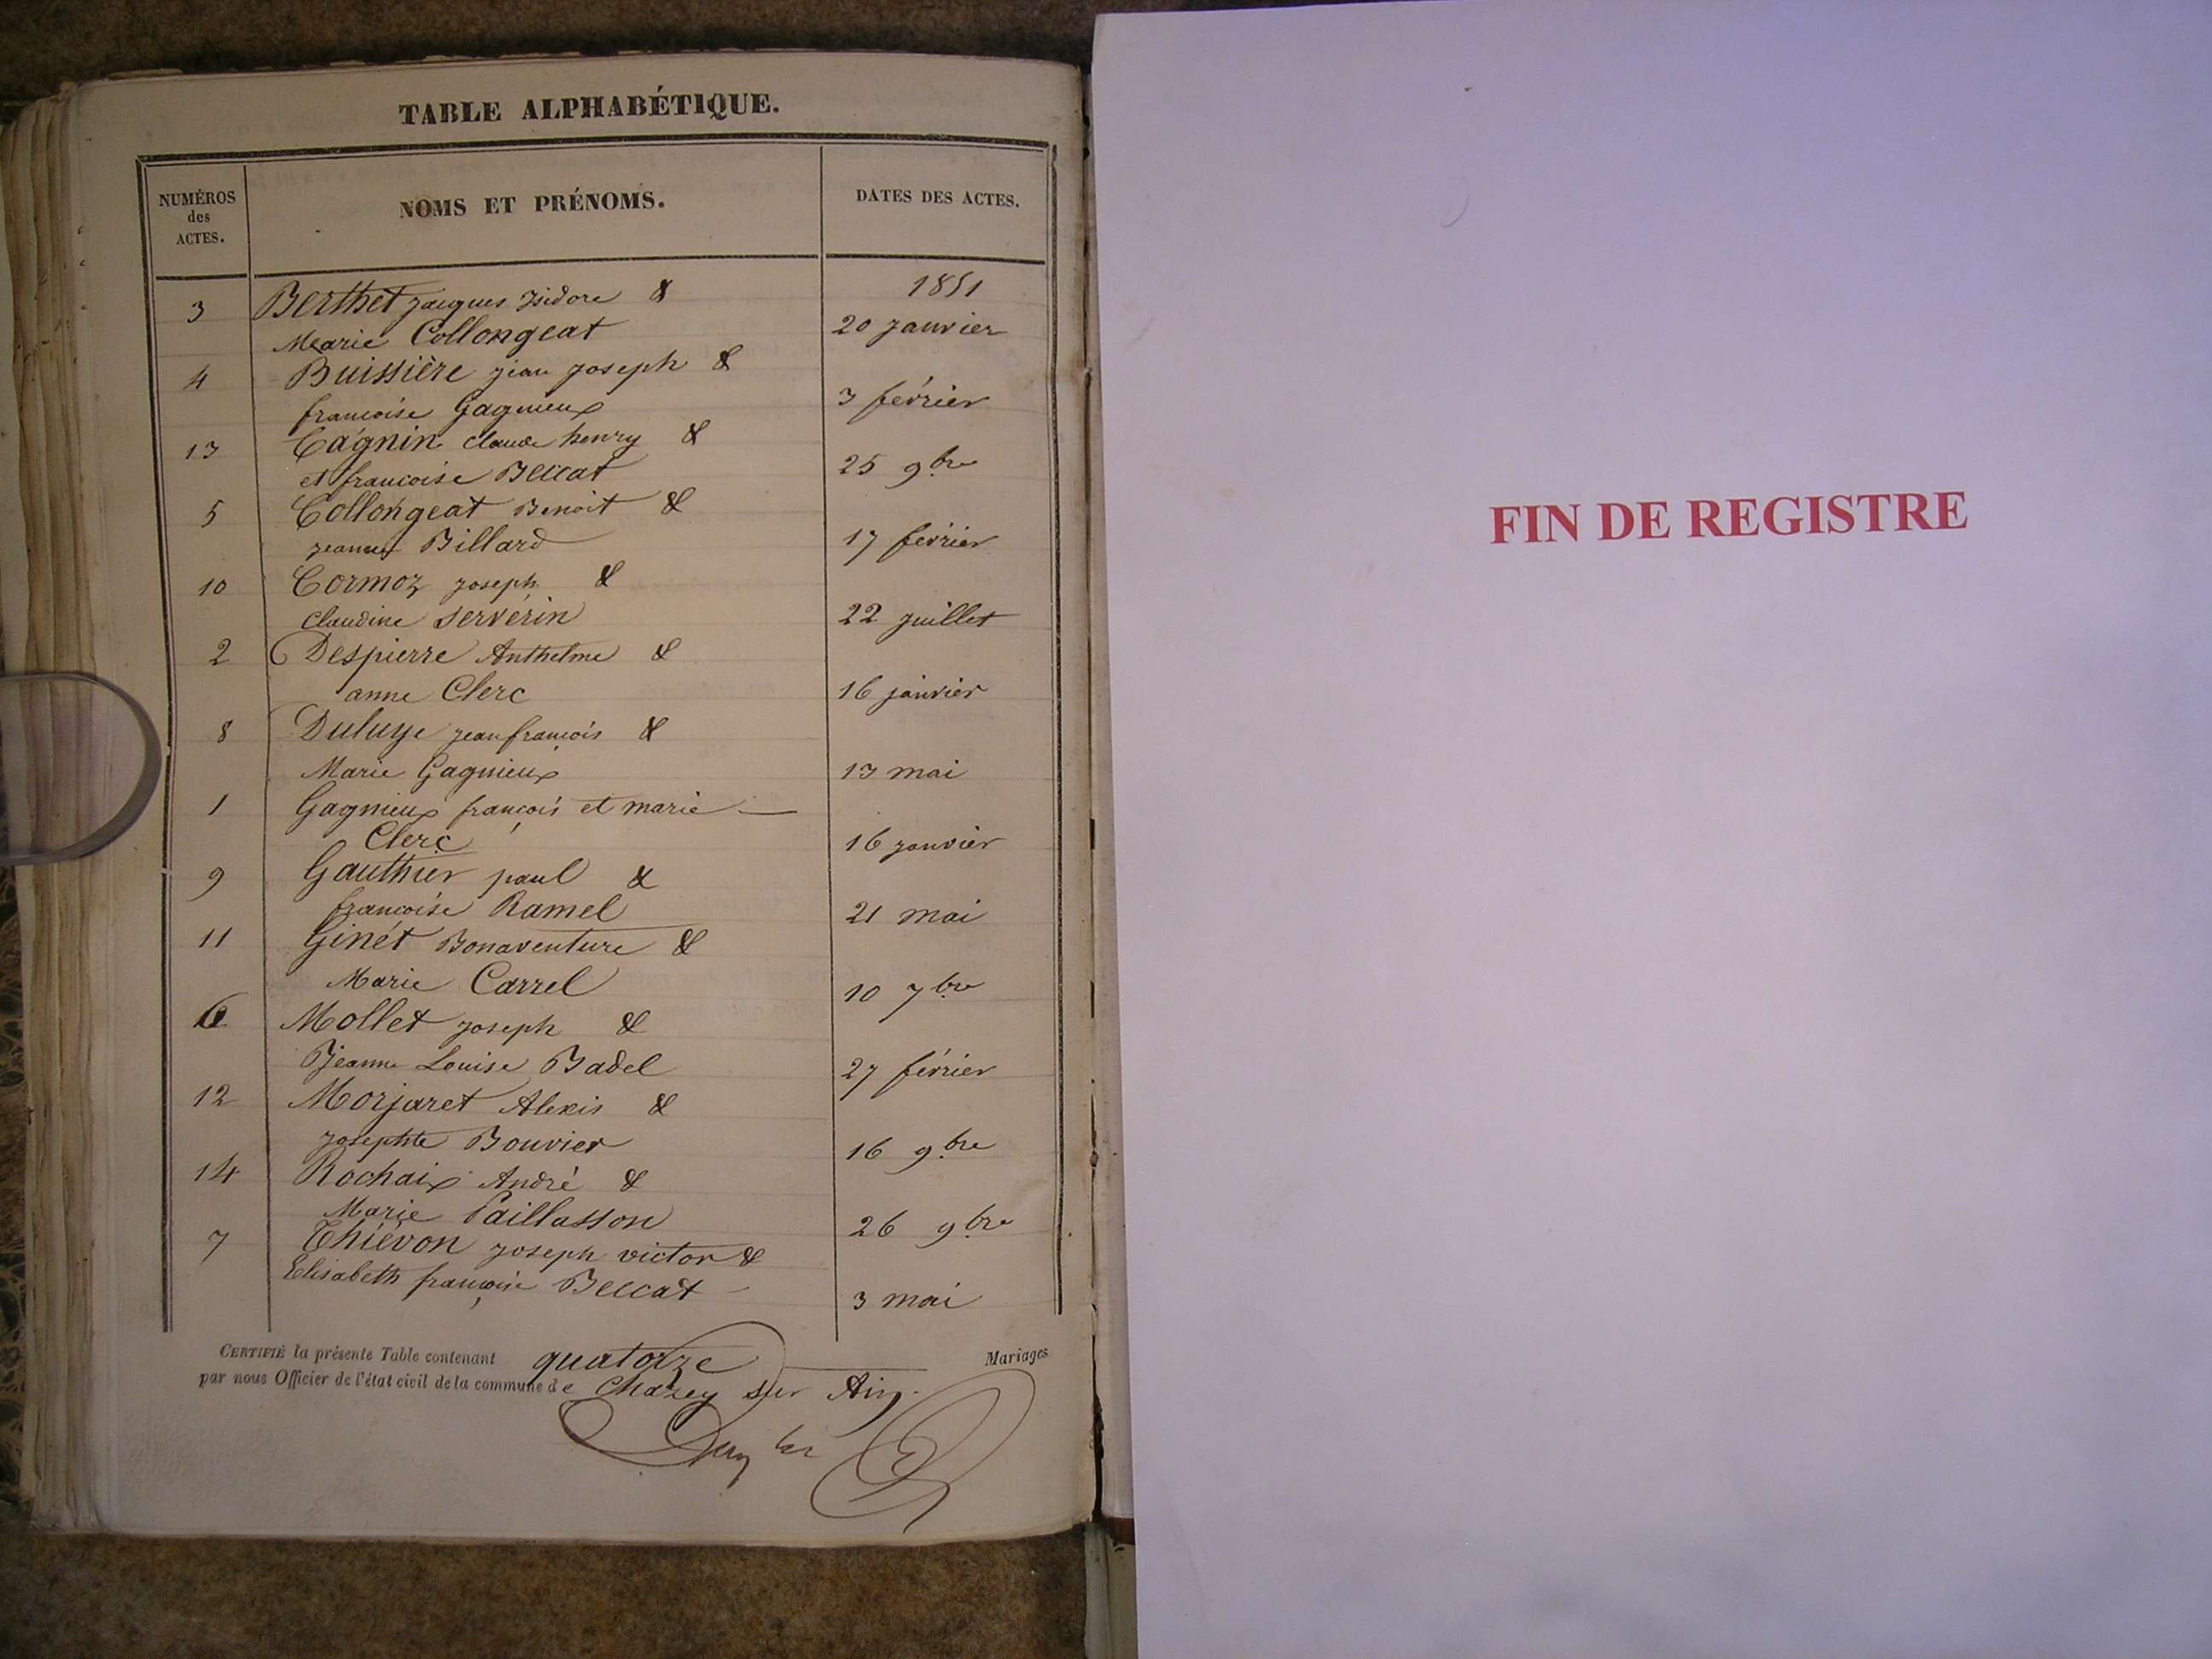 TABLE ALPHABÉTIQUE.
NUMÉROS des ACTES.
NOMS ET PRÉNOMS.
DATES DES ACTES.
1851
3 Berthet jacques isidore &
Marie Collongeat 20 janvier
4 Buissière jean joseph &
francoise Gagnieux 3 février
13 Cagnin claude henry &
et francoise Beccat 25 9bre
5 Collongeat Benoit &
jeanne Billard 17 février
10 Cormoz joseph &
Claudine Servérin 22 juillet
2 Despierre Anthelme &
anne Clerc 16 janvier
8 Duluye jean francois &
Marie Gagnieux 13 mai
1 Gagnieux françois et marie —
Clerc 16 janvier
9 Gauthier paul &
francoise Ramel 21 mai
11 Ginet Bonaventure &
Marie Carrel 10 7bre
6 Mollet joseph &
Jeanne Louise Badel 27 février
12 Morjaret Alexis &
josephte Bouvier 16 9bre
14 Rochaix André &
Marie Paillasson 26 9bre
7 Thiévon joseph victor &
Elisabeth françoise Beccat - 3 mai
CERTIFIÉ la présente Table contenant quatorze Mariages
par nous Officier de l'état civil de la commune de Chazey sur Ain.
FIN DE REGISTRE